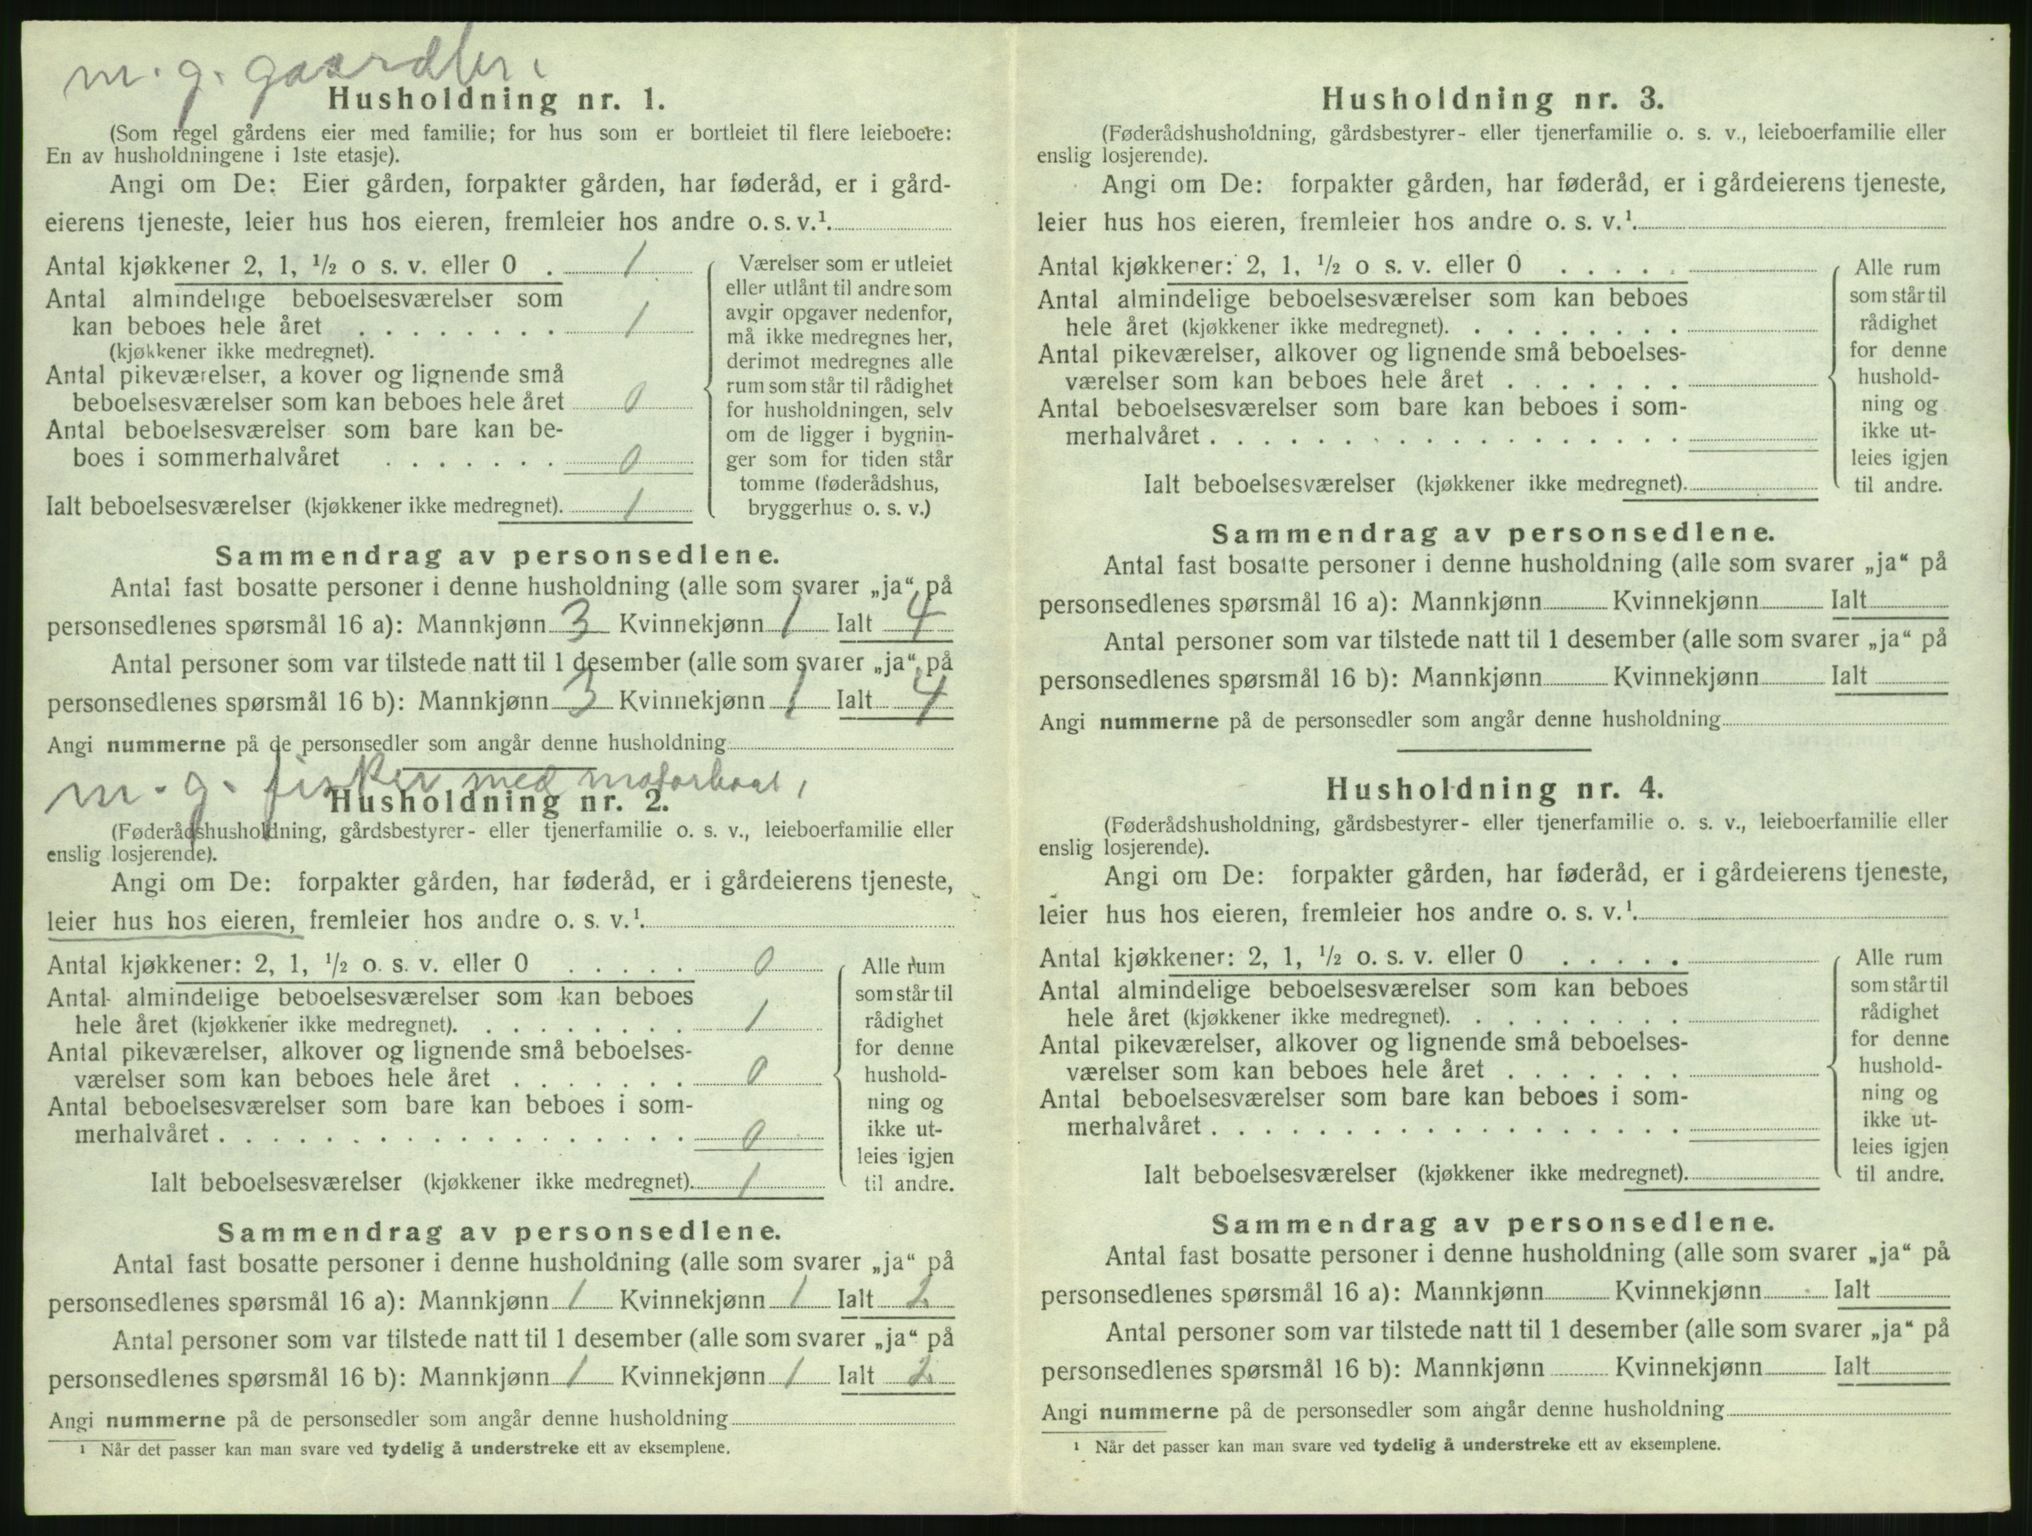 m. g. gaardbr.
Husholdning nr. 1.
(Som regel gårdens eier med familie; for hus som er bortleiet til flere leieboere:
En av husholdningene i 1ste etasje).
Angi om De: Eier gården, forpakter gården, har føderåd, er i gård-
eierens tjeneste, leier hus hos eieren, fremleier hos andre o. s. v.¹
Antal kjøkkener 2, 1, ½ o s. v. eller 0 . 1
Antal almindelige beboelsesværelser som
kan beboes hele året . . . . . . . . 1
(kjøkkener ikke medregnet).
Antal pikeværelser, a kover og lignende små
beboelsesværelser som kan beboes hele året 0
Antal beboelsesværelser som bare kan be-
boes i sommerhalvåret . . . . . . . 0
Ialt beboelsesværelser (kjøkkener ikke medregnet). 1
Værelser som er utleiet
eller utlånt til andre som
avgir opgaver nedenfor,
må ikke medregnes her,
derimot medregnes alle
rum som står til rådighet
for husholdningen, selv
om de ligger i bygnin-
ger som for tiden står
tomme (føderådshus,
bryggerhus o. s. v.)
Sammendrag av personsedlene.
Antal fast bosatte personer i denne husholdning (alle som svarer „ja“ på
personsedlenes spørsmål 16 a): Mannkjønn 3 Kvinnekjønn 1 Ialt 4
Antal personer som var tilstede natt til 1 desember (alle som svarer „ja“ på
personsedlenes spørsmål 16 b): Mannkjønn 3 Kvinnekjønn 1 Ialt 4
Angi nummerne på de personsedler som angår denne husholdning
m. g. fisker med motorbaat,
Husholdning nr. 2.
(Føderådshusholdning, gårdsbestyrer- eller tjenerfamilie o. s. v., leieboerfamilie eller
enslig losjerende).
Angi om De: forpakter gården, har føderåd, er i gårdeierens tjeneste,
leier hus hos eieren, fremleier hos andre o. s. v.¹
Antal kjøkkener: 2, 1, ½ o. s. v. eller 0 . . . . . 0
Antal almindelige beboelsesværelser som kan beboes
hele året (kjøkkener ikke medregnet). . . . . . . . . 1
Antal pikeværelser, alkover og lignende små beboelses-
værelser som kan beboes hele året . . . . . . . 0
Antal beboelsesværelser som bare kan beboes i som-
merhalvåret . . . . . . . . . . . . . . . . . . 0
Ialt beboelsesværelser (kjøkkener ikke medregnet). 1
Alle rum
som står til
rådighet
for denne
hushold-
ning og
ikke ut-
leies igjen
til andre.
Sammendrag av personsedlene.
Antal fast bosatte personer i denne husholdning (alle som svarer „ja“ på
personsedlenes spørsmål 16 a): Mannkjønn 1 Kvinnekjønn 1 Ialt 2
Antal personer som var tilstede natt til 1 desember (alle som svarer „ja“ på
personsedlenes spørsmål 16 b): Mannkjønn 1 Kvinnekjønn 1 Ialt 2
Angi nummerne på de personsedler som angår denne husholdning
¹ Når det passer kan man svare ved tydelig å understreke ett av eksemplene.
Husholdning nr. 3.
(Føderådshusholdning, gårdsbestyrer- eller tjenerfamilie o. s. v., leieboerfamilie eller
enslig losjerende).
Angi om De: forpakter gården, har føderåd, er i gårdeierens tjeneste,
leier hus hos eieren, fremleier hos andre o. s. v.¹
Antal kjøkkener: 2, 1, ½ o s. v. eller 0 . . . . .
Antal almindelige beboelsesværelser som kan beboes
hele året (kjøkkener ikke medregnet). . . . . . . . .
Antal pikeværelser, alkover og lignende små beboelses-
værelser som kan beboes hele året . . . . . . .
Antal beboelsesværelser som bare kan beboes i som-
merhalvåret . . . . . . . . . . . . . . . . . .
Ialt beboelsesværelser (kjøkkener ikke medregnet).
Alle rum
som står til
rådighet
for denne
hushold-
ning og
ikke ut-
leies igjen
til andre.
Sammendrag av personsedlene.
Antal fast bosatte personer i denne husholdning (alle som svarer „ja“ på
personsedlenes spørsmål 16 a): Mannkjønn Kvinnekjønn Ialt
Antal personer som var tilstede natt til 1 desember (alle som svarer „ja“ på
personsedlenes spørsmål 16 b): Mannkjønn Kvinnekjønn Ialt
Angi nummerne på de personsedler som angår denne husholdning
Husholdning nr. 4.
(Føderådshusholdning, gårdsbestyrer- eller tjenerfamilie o. s. v., leieboerfamilie eller
enslig losjerende).
Angi om De: forpakter gården, har føderåd, er i gårdeierens tjeneste,
leier hus hos eieren, fremleier hos andre o. s. v.¹
Antal kjøkkener: 2, 1, ½ o. s. v. eller 0 . . . . .
Antal almindelige beboelsesværelser som kan beboes
hele året (kjøkkener ikke medregnet). . . . . . . . .
Antal pikeværelser, alkover og lignende små beboelses-
værelser som kan beboes hele året . . . . . . .
Antal beboelsesværelser som bare kan beboes i som-
merhalvåret . . . . . . . . . . . . . . . . . .
Ialt beboelsesværelser (kjøkkener ikke medregnet).
Alle rum
som står til
rådighet
for denne
hushold-
ning og
ikke ut-
leies igjen
til andre.
Sammendrag av personsedlene.
Antal fast bosatte personer i denne husholdning (alle som svarer „ja“ på
personsedlenes spørsmål 16 a): Mannkjønn Kvinnekjønn Ialt
Antal personer som var tilstede natt til 1 desember (alle som svarer „ja“ på
personsedlenes spørsmål 16 b): Mannkjønn Kvinnekjønn Ialt
Angi nummerne på de personsedler som angår denne husholdning
¹ Når det passer kan man svare ved tydelig å understreke ett av eksemplene.